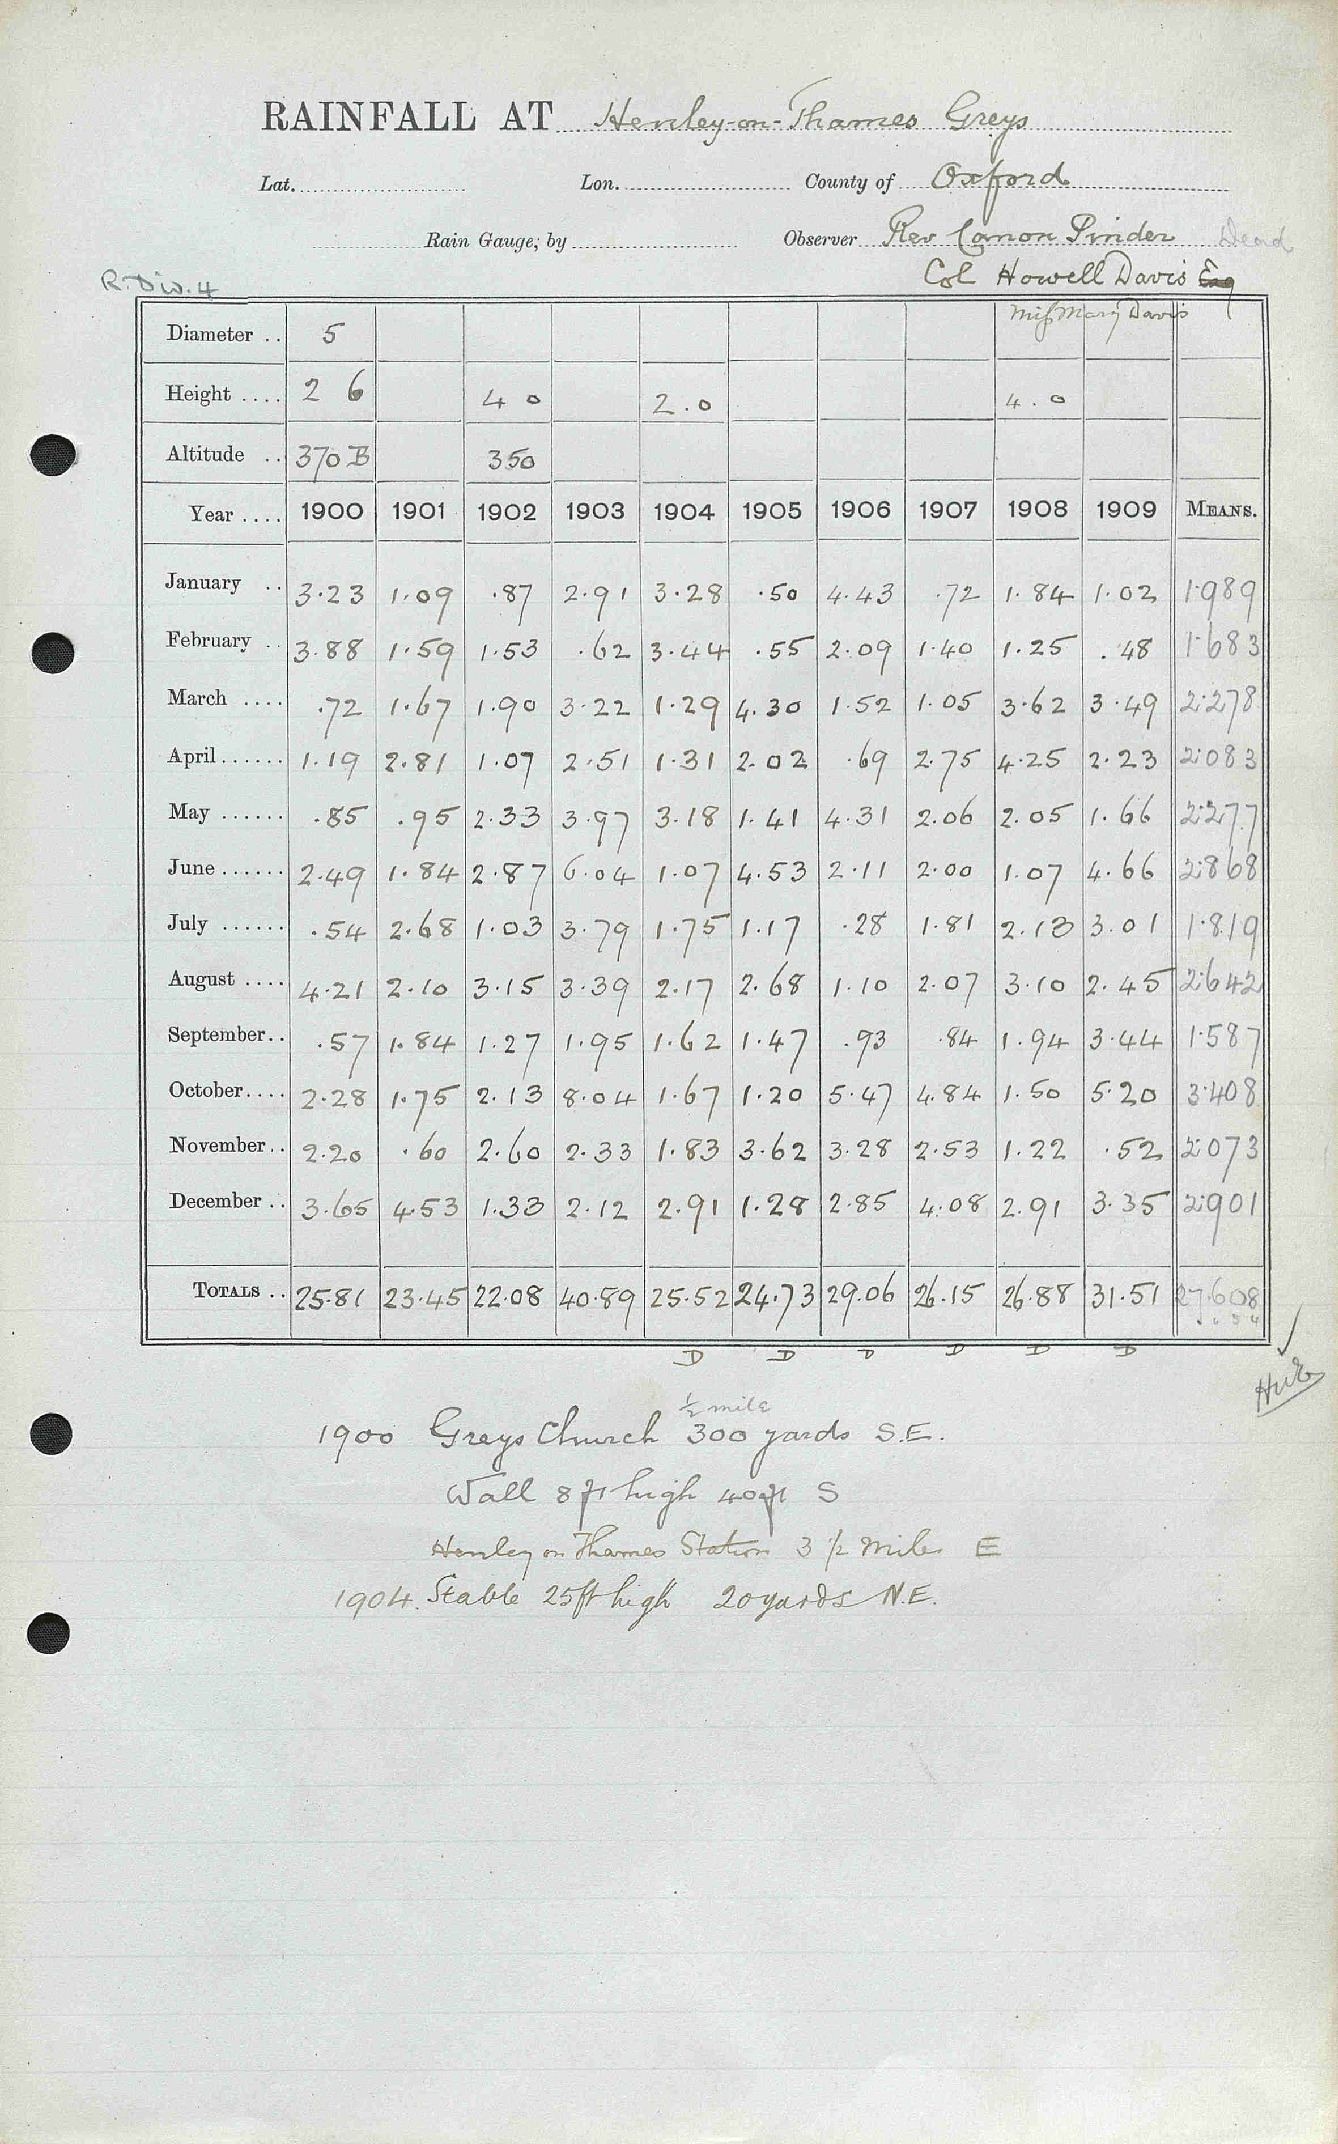 RAINFALL AT Henley-on-Thames Greys
Lat. Lon. County of Oxford
Rain Gauge, by Observer Rev Canon Pinder Dead
R. Div. 4 Col Howell Davis Esq
Miss Mary Davis
Diameter .. 5
Height .... 2 6 4 0 2.0 4.0
Altitude .. 370 B 350
Year .... 1900 1901 1902 1903 1904 1905 1906 1907 1908 1909 MEANS.
January .. 3.23 1.09 .87 2.91 3.28 .50 4.43 .72 1.84 1.02 1.989
February .. 3.88 1.59 1.53 .62 3.44 .55 2.09 1.40 1.25 .48 1.683
March .... .72 1.67 1.90 3.22 1.29 4.30 1.52 1.05 3.62 3.49 2.278
April ...... 1.19 2.81 1.07 2.51 1.31 2.02 .69 2.75 4.25 2.23 2.083
May ...... .85 .95 2.33 3.97 3.18 1.41 4.31 2.06 2.05 1.66 2.277
June ...... 2.49 1.84 2.87 6.04 1.07 4.53 2.11 2.00 1.07 4.66 2.868
July ...... .54 2.68 1.03 3.79 1.75 1.17 .28 1.81 2.13 3.01 1.819
August .... 4.21 2.10 3.15 3.39 2.17 2.68 1.10 2.07 3.10 2.45 2.642
September .. .57 1.84 1.27 1.95 1.62 1.47 .93 .84 1.94 3.44 1.587
October .... 2.28 1.75 2.13 8.04 1.67 1.20 5.47 4.84 1.50 5.20 3.408
November .. 2.20 .60 2.60 2.33 1.83 3.62 3.28 2.53 1.22 .52 2.073
December .. 3.65 4.53 1.33 2.12 2.91 1.28 2.85 4.08 2.91 3.35 2.901
TOTALS .. 25.81 23.45 22.08 40.89 25.52 24.73 29.06 26.15 26.88 31.51 27.608
D D D D D D
½ mile
1900 Greys Church 300 yards S.E.
Wall 8 ft high 40 ft S
Henley on Thames Station 3 1/2 miles E
1904. Stable 25ft high 20 yards N.E.